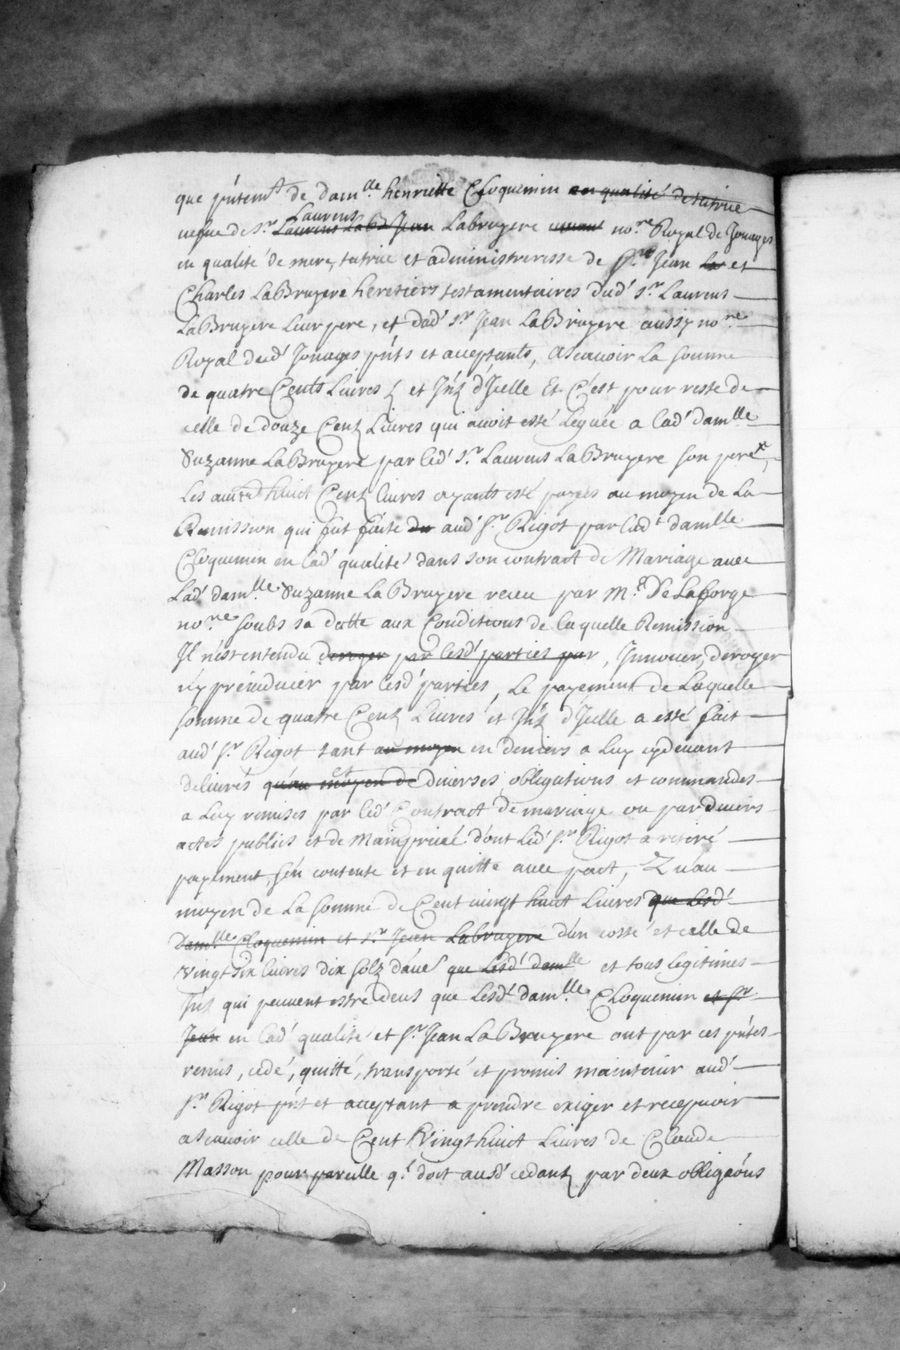 que p̃ntem^t de dam^lle henriette Cloquemin en qualité de tutrice
vefue de s^r Laurens Labruyere viuant no^re Royal de Jonages
en qualité de mere, tutrice et administreresse de s^rs Jean La et
Charles LaBruyere heretiers testamentaires dud' s^r Laurens
LaBruyere Leur pere, et dud' s^r Jean LaBruyere aussy no^re
Royal dud' Jonages p̃nts et acceptants, ascauoir La somme
de quatre Cents Liures, et Jnt̃ d'Jcelle Et C'est pour reste de
celle de douze Cent Liures qui auoit esté Leguée a Lad' dam^lle
Suzanne LaBruyere par led' s^r Laurens LaBruyere son pere,
Les autre huict Cent Liures ayants esté payés au moyen de La
Remission qui fut faite du aud' s^r Rigot par lad^t dam^lle
Cloquemin en lad' qualité dans son contract de Mariage auec
Lad' dam^lle Suzanne LaBruyere receu par M^e DeLaGorge
no^re soubs sa datte aux Conditions de laquelle Remission
Il n'est entendu deroger par lesd' parties par, Jnnouer, deroger
ny preiudicier par lesd' parties, Le payement de Laquelle
somme de quatre Cent Liures et Jnt̃ d'Jcelle a esté fait
aud' s^r Rigot tant au moyen en deniers a Luy cydeuant
deliurés qu'au moyen de et diuerses obligations et commandes
a Luy remises par led' Contract de mariage ou par diuers
actes publics et de Main priué dont Led' s^r Rigot a retiré
payement s'en contente et en quitte auec pact, Qu'au
moyen de La somme de Cent vingt huict Liures que Lesd'
Dam^lle Cloquemin et s^r Jean Labruyere d'un costé et celle de
vingt six liures dix solz d'auē que Lesd' dam^lle et tous legitimes
Jnt̃ qui peuuent estre deus que Lesd' dam^lle Cloquemin et s^r
Jean en lad' qualité et s^r Jean LaBruyere ont par ces p̃ntes
remis, cedé, quitté, transporté et promis maintenir aud'
s^r Rigot p̃nt et acceptant a prendre exiger et recepuoir
ascauoir celle de Cent Vingt huict Liures de Claude
Masson pour pareille q^l doit ausd' cedant par deux obligaõns